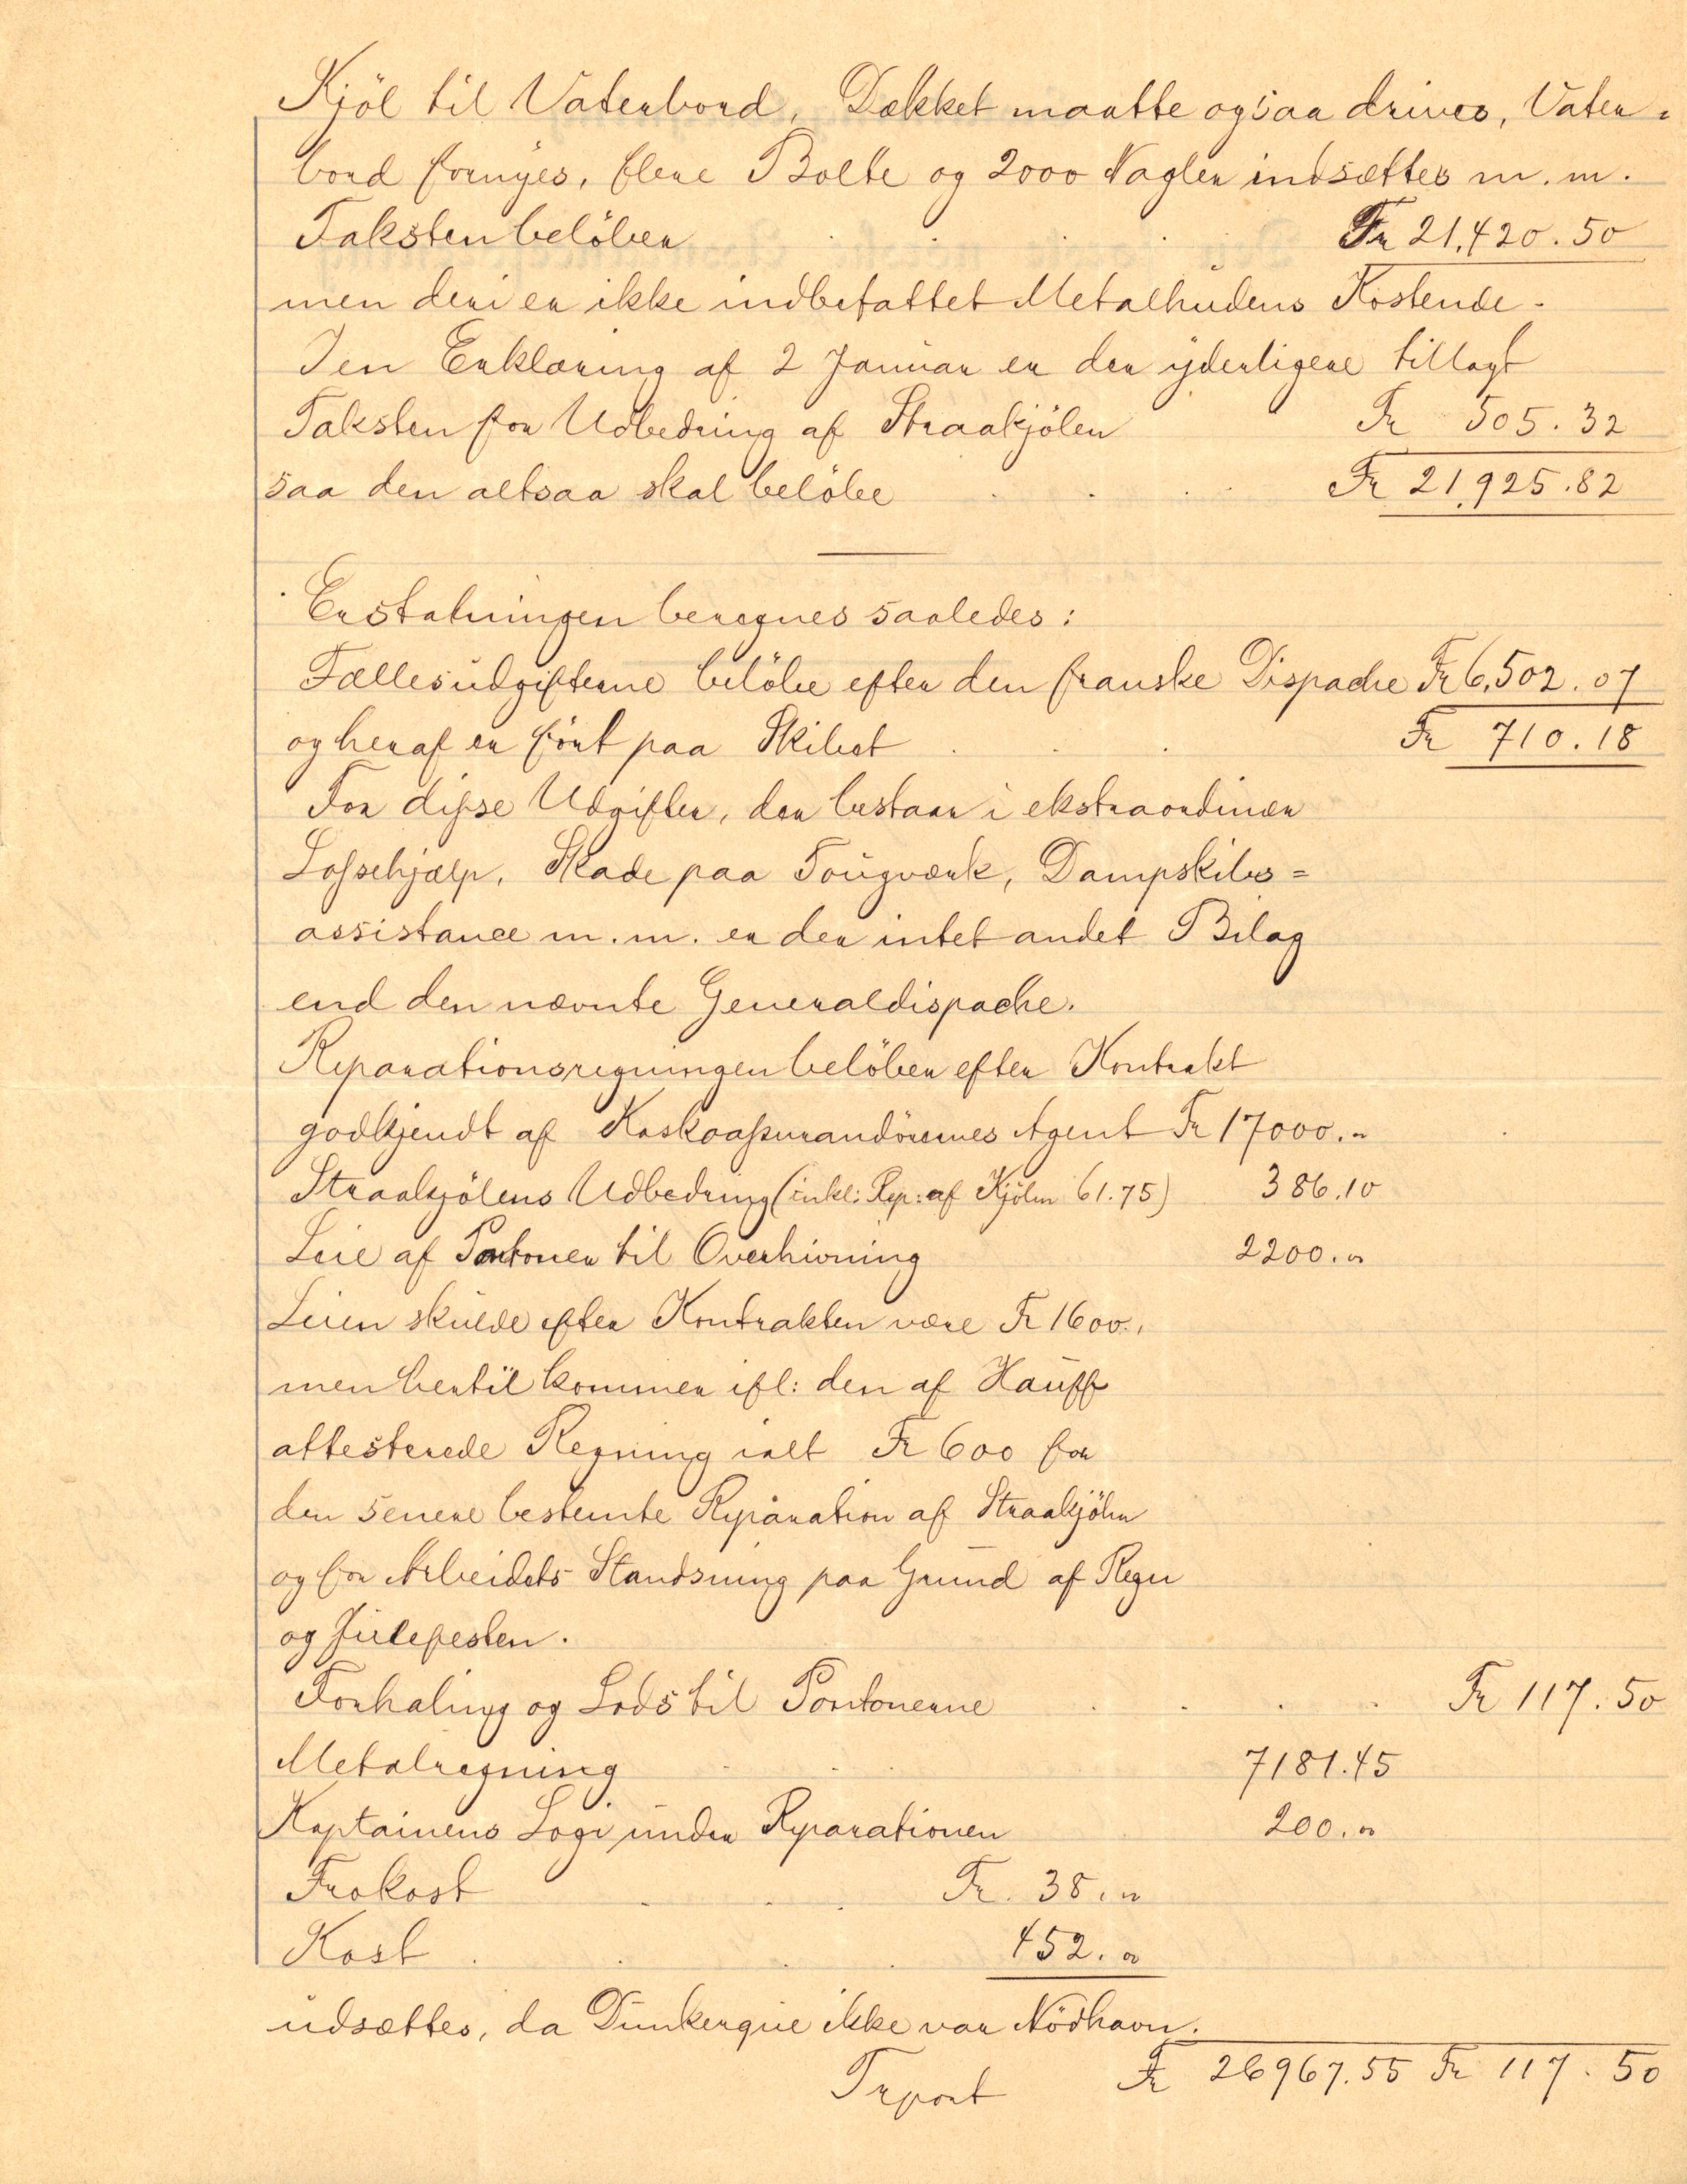 Kjöl til Vaterbord, Dækket maatte ogsaa drives, Vater=
bord fornyes, flere Bolte og 2000 Nagler indsættes m. m.
Taksten belöber . . . . . Fr 21,420.50
men deri er ikke indbefattet Metalhudens Kostende.
I en Erklæring af 2 Januar er der yderligere tillagt
Taksten for Udbedring af Straakjölen Fr 505.32
saa den altsaa skal belöbe . . . . Fr 21,925.82
Erstatningen beregnes saaledes:
Fællesudgifterne belöbe efter den franske Dispache Fr 6,502.07
og heraf er fört paa Skibet . . . Fr 710.18
For disse Udgifter, der bestaar i ekstraordinær
Lossehjælp, Skade paa Tougværk, Dampskibs=
assistance m. m. er der intet andet Bilag
end den nævnte Generaldispache.
Reparationsregningen belöber efter Kontrakt
godkjendt af Kaskoassurandörernes Agent Fr 17000.„
Straakjölens Udbedring (inkl: Rep: af Kjölen 61.75) 386.10
Leie af Pontoner til Overhivning 2200.„
Leien skulde efter Kontrakten være Fr 1600.,
men hertil kommer ifl: den af Hauff
attesterede Regning ialt Fr 600 for
den senere bestemte Reparation af Straakjölen
og for Arbeidets Standsning paa Grund af Regn
og Julefesten.
Forhaling og Lods til Pontonerne . . . . Fr 117.50
Metalregning . . . 7181.45
Kaptainens Logi under Reparationen 200.„
Frokost . . . Fr. 38.„
Kost . . . . 452.„
udsættes, da Dunkerque ikke var Nödhavn.
Trport Fr 26967.55 Fr 117.50